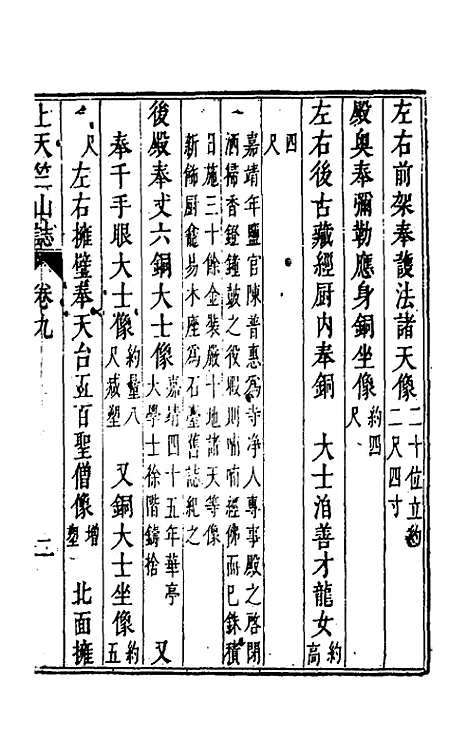 左右前架奉護法諸天像二十位立約二尺四寸
殿奧奉彌勒應身銅坐像約四尺
左右後古藏經厨内奉銅　大士洎善才龍女約高
四尺
嘉靖年鹽官陳普惠爲寺淨人專事殿之啓閉
洒掃香鐙鐘鼓之役暇則喃喃經佛而已銖積
日施三十餘金裝嚴十地諸天等像
新飾厨龕易木座爲石臺舊誌紀之
後殿奉丈六銅大士像嘉靖四十五年華亭大學士徐階鑄捨　又
奉千手眼大士像約量八尺藏塑　又銅大士坐像約五
尺　左右擁壁奉天台五百聖僧像增塑　北面擁
上天竺山誌　卷九　二